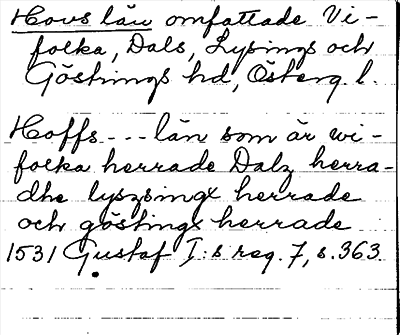 Hovs län omfattade Vi-
folka, Dals, Lysings och
Göstrings hd, Österg. l.
Hoffs --- län som är wi-
folka herrade Dalz herra-
dhe lyszsingx herrade
och göstingx herrade
1531 Gustaf I:s reg. 7, s. 363.